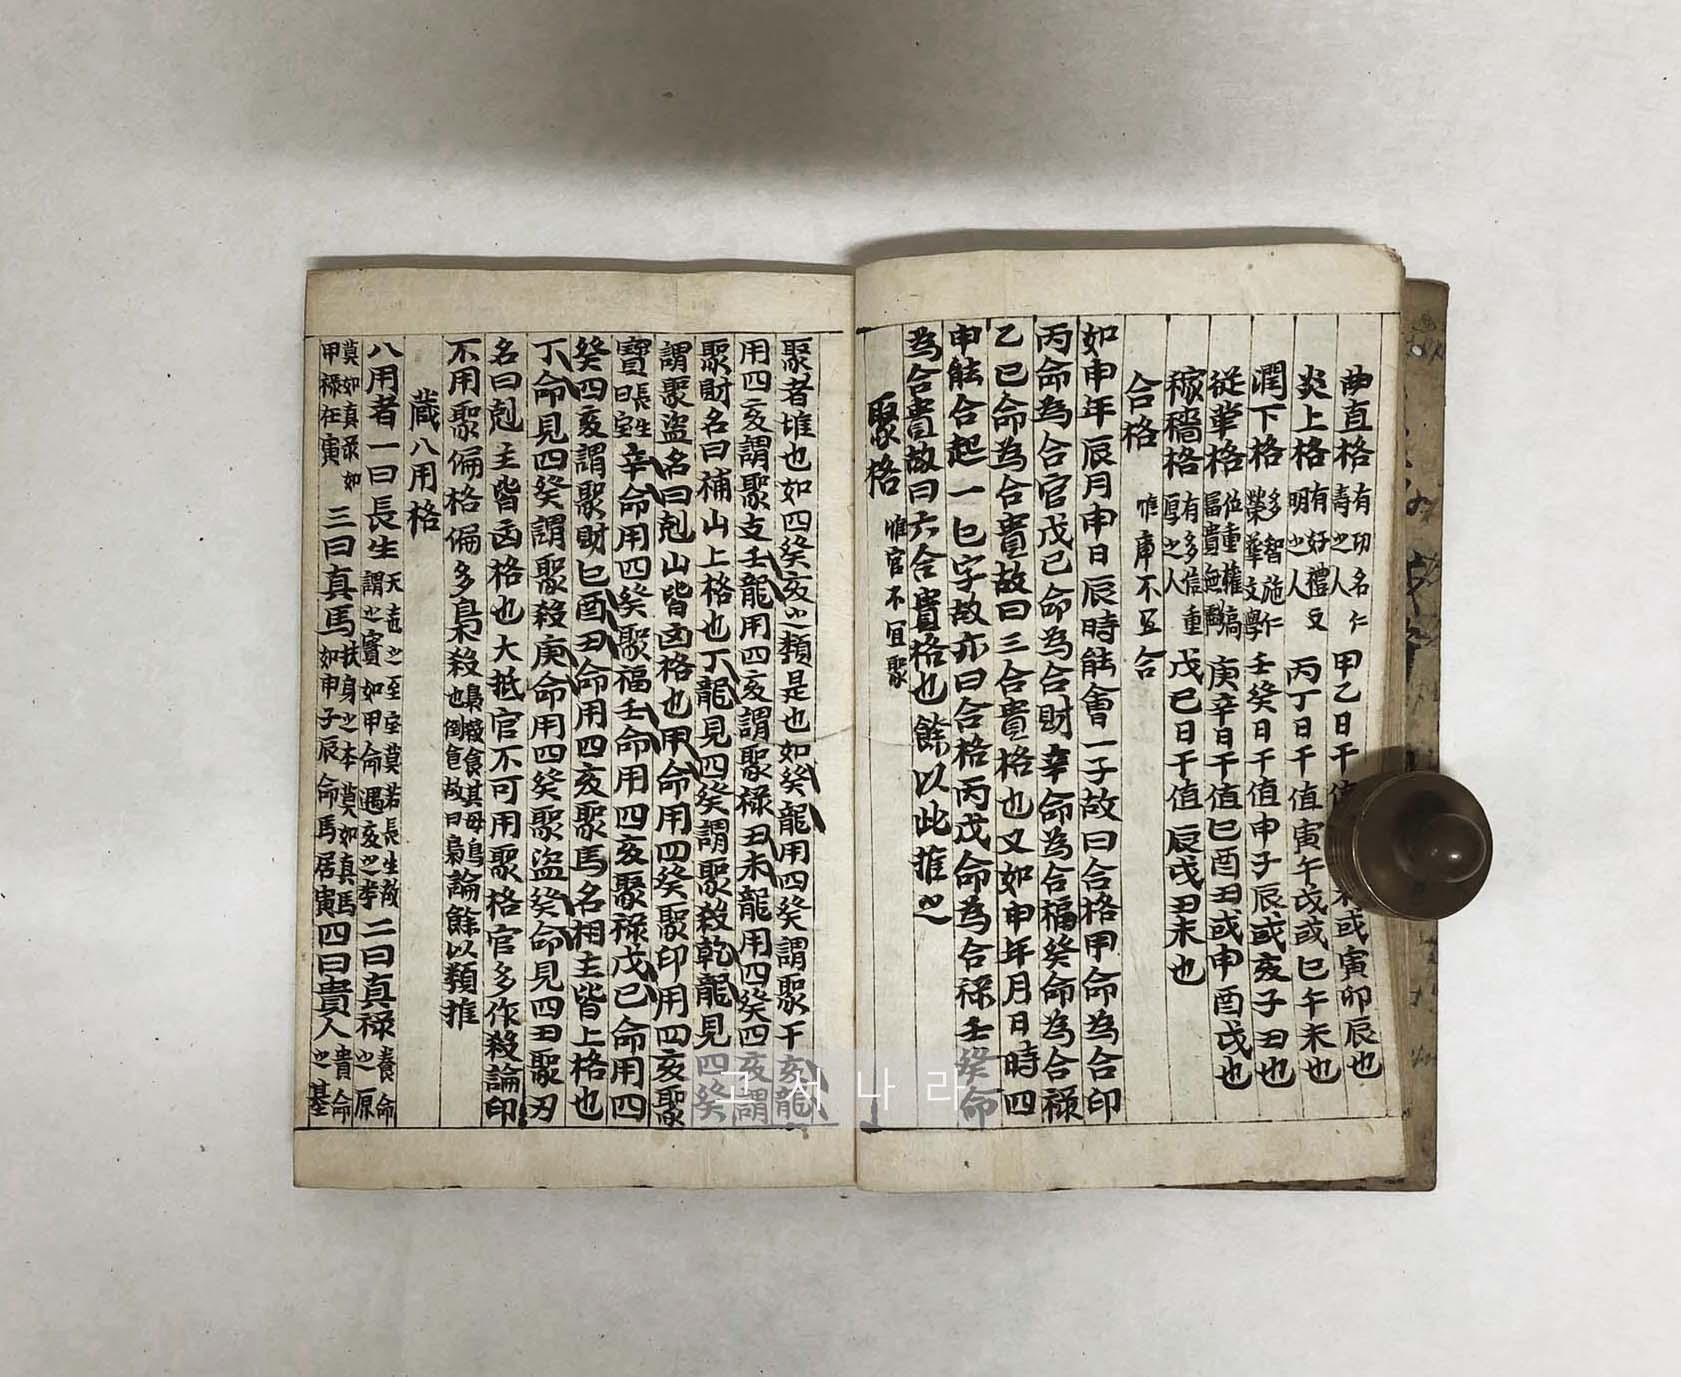 曲直格 有功名仁壽之人 甲乙日干值 或寅卯辰也
炎上格 有好禮文明之人 丙丁日干值寅午戌或巳午未也
潤下格 多智施仁榮華文學 壬癸日干值申子辰或亥子丑也
從革格 位重權高富貴無 庚辛日干值巳酉丑或申酉戌也
稼穡格 有多信重厚之人 戊己日干值辰戌丑未也
合格 惟庫不宜合
如申年辰月申日辰時能會一子故曰合格甲命為合印
丙命為合官戊己命為合財辛命為合福癸命為合祿
乙巳命為合貴故曰三合貴格也又如申年月日時四
申能合起一巳字故亦曰合格丙戊命為合祿壬癸命
為合貴故曰六合貴格也餘以此推之
聚格 惟官不宜聚
聚者堆也如四癸亥之類是也如癸龍用四癸謂聚干亥龍
用四亥謂聚支壬龍用四亥謂聚祿丑未龍用四癸四亥謂
聚財名曰補山上格也丁龍見四癸謂聚殺乾龍見四癸
謂聚盜名曰剋山皆凶格也甲命用四癸聚印用四亥聚
寶曰長生室 辛命用四癸聚福壬命用四亥聚祿戊己命用四
癸四亥謂聚財巳酉丑命用四亥聚馬名相主皆上格也
丁命見四癸謂聚殺庚命用四癸聚盜癸命見四丑聚刃
名曰剋主皆凶格也大抵官不可用聚格官多作殺論印
不用聚偏格偏多梟殺也梟殺食其母鳥倒食故曰梟論餘以類推
歲八用格
八用者一曰長生 天地之至室莫若長生故謂之寶如甲命遇亥之李 二曰真祿 養命之原
莫如真祿如甲祿在寅 三曰真馬 扶身之本莫如真馬如申子辰命馬居寅 四曰貴人 貴命之基
고서나라